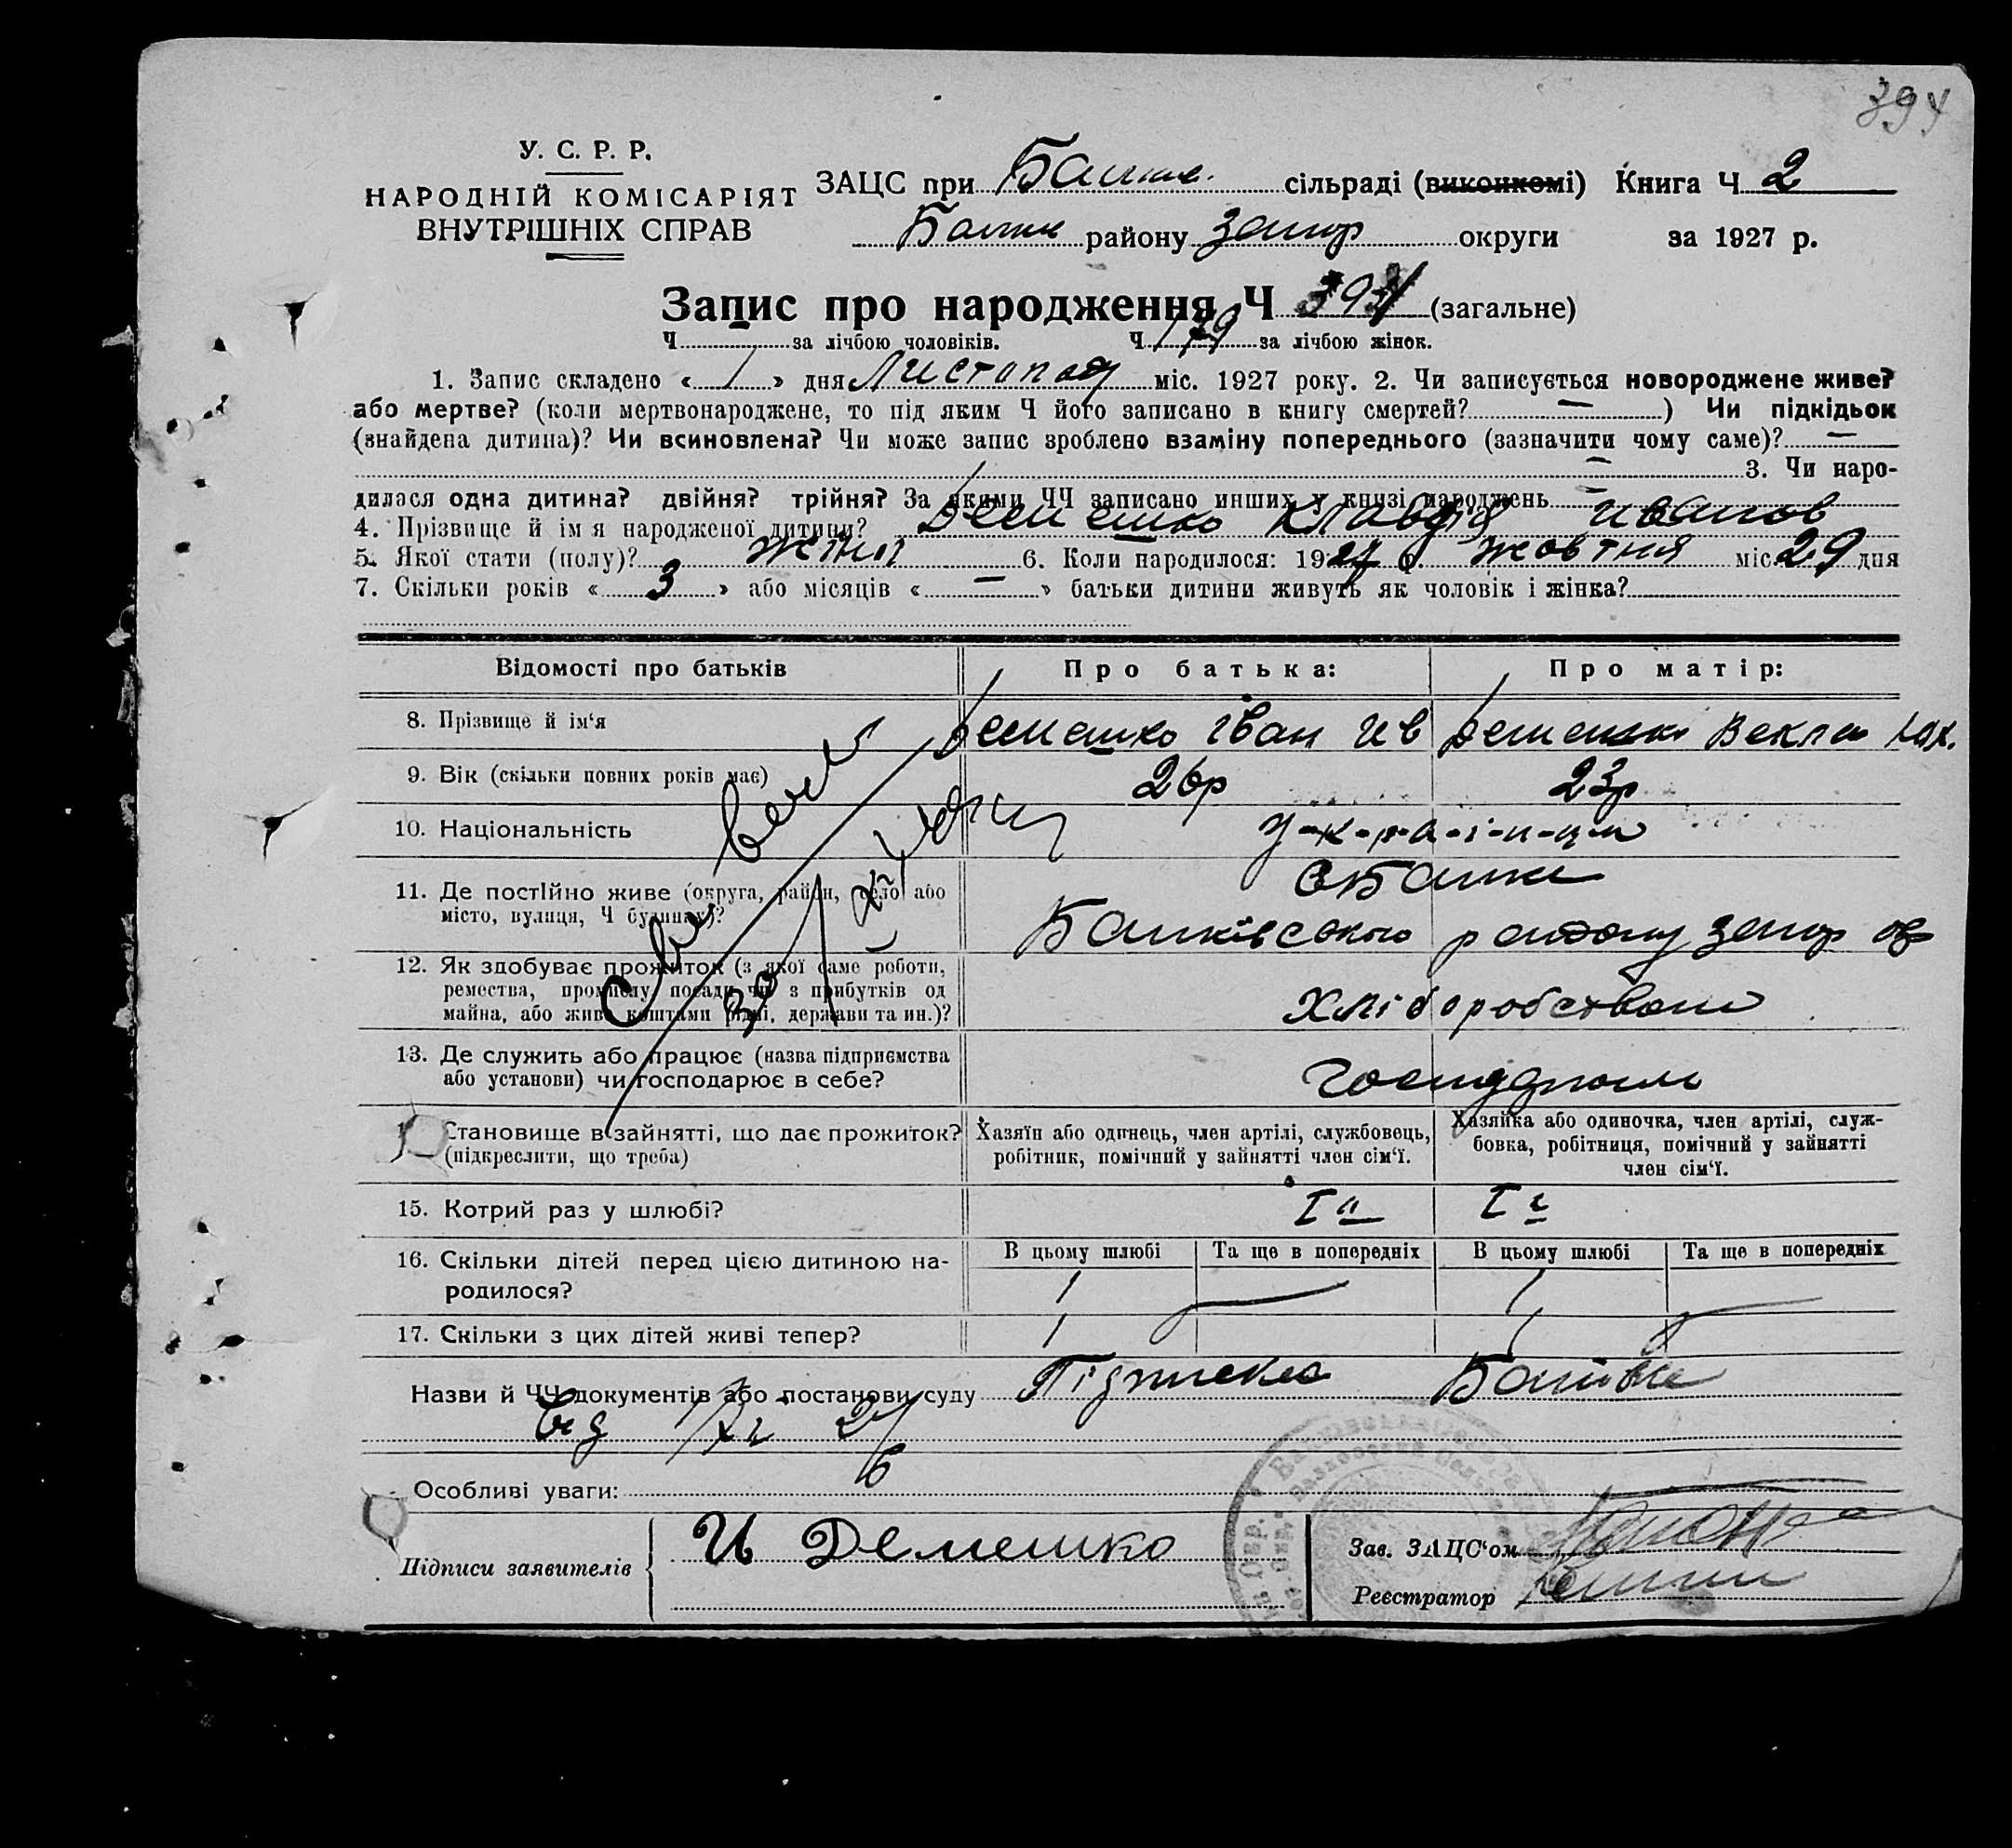 394
У. С. Р. Р.
НАРОДНІЙ КОМІСАРІЯТ
ВНУТРІШНІХ СПРАВ
ЗАЦС при сільраді (виконкомі) Книга Ч 2
району запор округи за 1927 р.
Запис про народження Ч 394 (загальне)
Ч за лічбою чоловіків. Ч 179 за лічбою жінок.
1. Запис складено « 1 » дня Листопад міс. 1927 року. 2. Чи записується новороджене живе?
або мертве? (коли мертвонароджене, то під яким Ч його записано в книгу смертей? — ) Чи підкідьок
(знайдена дитина)? Чи всиновлена? Чи може запис зроблено взаміну попереднього (зазначити чому саме)? —
— 3. Чи наро-
дилася одна дитина? двійня? трійня? За якими ЧЧ записано инших у книзі народжень —
4. Прізвище й імя народженої дитини? Демешко Клавдія Иванов
5. Якої стати (полу)? жіноч 6. Коли народилося: 1927 р. жовтня міс. 29 дня
7. Скільки років « 3 » або місяців « — » батьки дитини живуть як чоловік і жінка?
Відомості про батьків Про батька: Про матір:
8. Прізвище й ім‘я Демешко Іван Ив Демешко Векла
9. Вік (скільки повних років має) 26р 23р
10. Національність У-к-р-а-ї-н-ци
11. Де постійно живе (округа, район, село або
місто, вулиця, Ч будинку)?
району запор ок
12. Як здобуває прожиток (з якої саме роботи,
ремества, промислу, посади чи з прибутків од
майна, або живе коштами рідні, держави та ин.)? Хліборобством
13. Де служить або працює (назва підприємства
або установи) чи господарює в себе?
Становище в зайнятті, що дає прожиток?
(підкреслити, що треба)
Хазяїн або одинець, член артілі, службовець,
робітник, помічний у зайнятті член сім‘ї.
Хазяйка або одиночка, член артілі, служ-
бовка, робітниця, помічний у зайнятті
член сім‘ї.
15. Котрий раз у шлюбі? І І
В цьому шлюбі Та ще в попередніх В цьому шлюбі Та ще в попередніх
16. Скільки дітей перед цією дитиною на-
родилося? 1 — 1 —
17. Скільки з цих дітей живі тепер? 1 1
Назви й ЧЧ документів або постанови суду Підписка
Від 1/XI 27
Особливі уваги:
Підписи заявителів И Демешко
Зав. ЗАЦС‘ом
Реєстратор